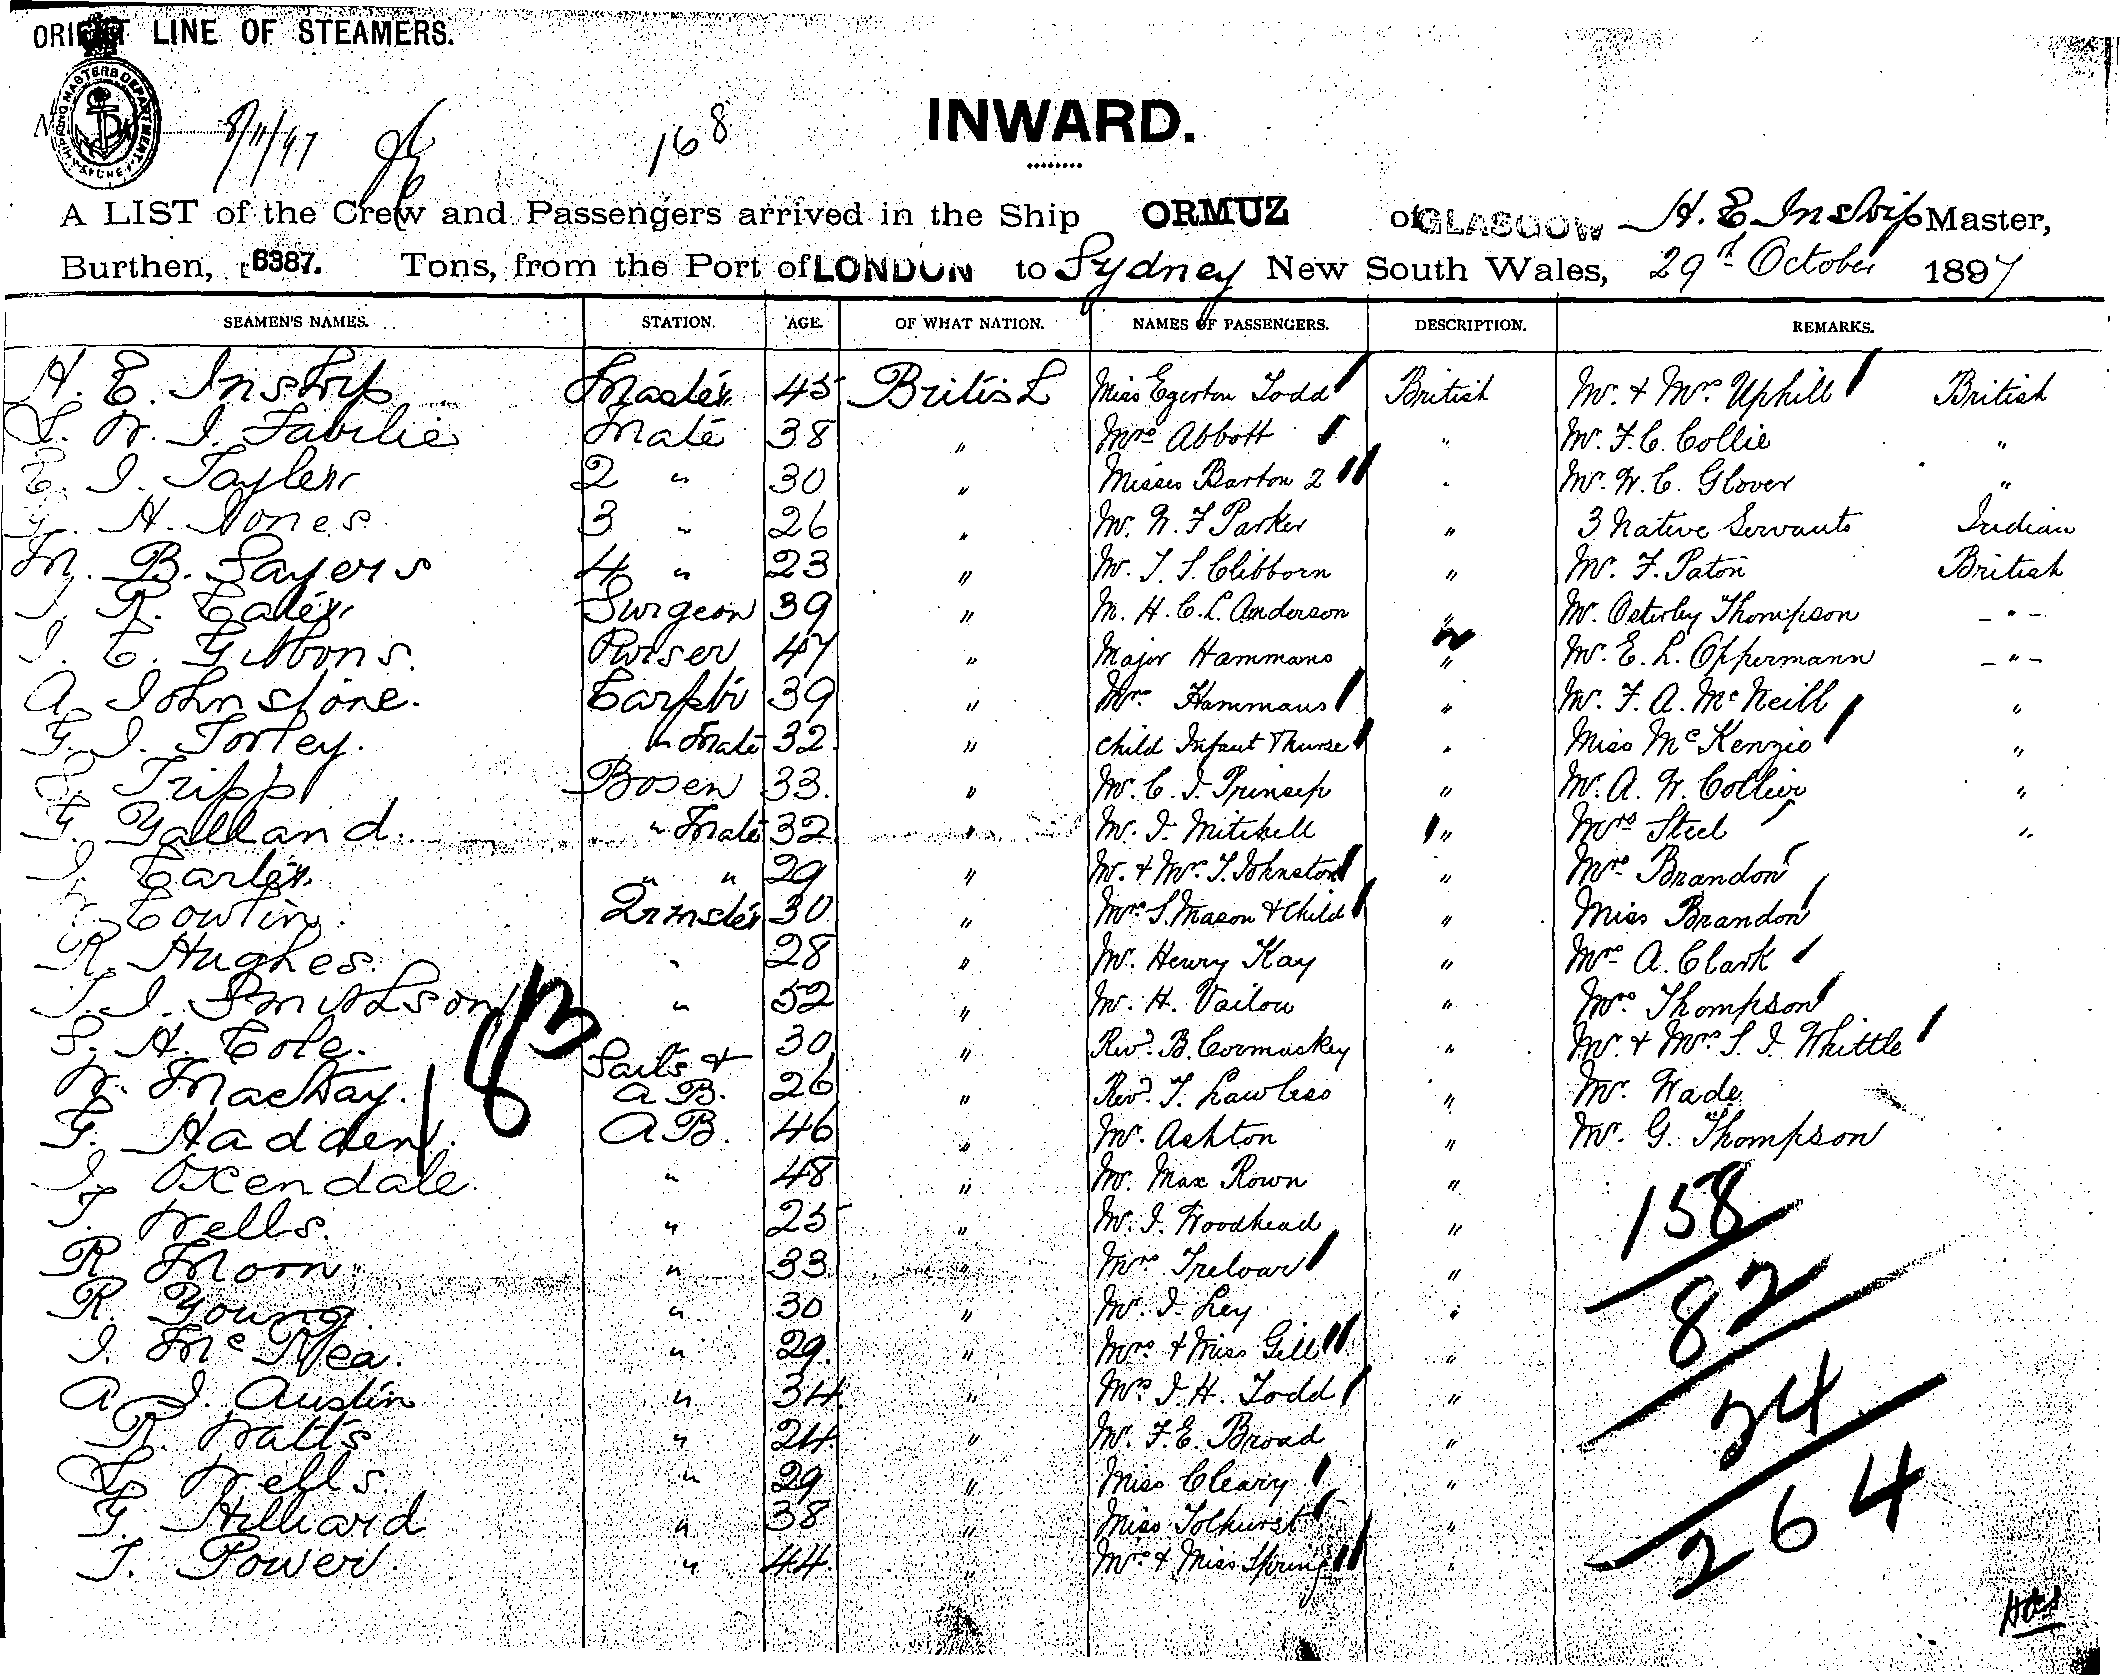 ORIENT LINE OF STEAMERS.
SHIPPING MASTERS DEPARTMENT
SYDNEY
8/11/97
168
INWARD.
A LIST of the Crew and Passengers arrived in the Ship ORMUZ of GLASGOW H. E. Inskip Master,
Burthen, 6387. Tons, from the Port of LONDON to Sydney New South Wales, 29th October 1897
SEAMEN'S NAMES. STATION. AGE. OF WHAT NATION. NAMES OF PASSENGERS. DESCRIPTION. REMARKS.
H. E. Inskip Master 45 British Miss Egerton Todd British Mr. & Mrs Uphill British
W. I. Mate 38 " Mrs Abbott " Mr. F. C. Collie "
I. Tayler 2 " 30 " Misses Barton 2 " Mr. W. C. Glover "
H. Jones 3 " 26 " Mr. W. F Parker " 3 Native Servants Indian
M. B. Sayers 4 " 23 " Mr. T. S. Clibborn " Mr. F. Paton British
R. Cater Surgeon 39 " M. H. C. L. Anderson " Mr. Osterley Thompson - " -
I. E. Gibbons. Purser 47 " Major Hammans " Mr. E. L. Oppermann - " -
A. Johnstone. Carptr 39 " Mrs Hammans " Mr. F. A. McNeill "
G. I. Torley. " Mate 32 " Child Infant & Nurse " Miss McKenzie "
Tripp Bosen 33. " Mr. C. I. Prinsep " Mr. A. W. Collier "
G. Yalland. " Mate 32 " Mr. I. Mitchell " Mrs Steel "
I. Carter. " " 29 " Mr. & Mrs. T. Johnston " Mrs Brandon
Cowlin. Qrmster 30 " Mrs S. Mason & Child " Miss Brandon
R. Hughes. " 28 " Mr. Henry Kay " Mrs A. Clark
T. I. " 52 " Mr. H. Vailou " Mrs Thompson
S. H. Cole. 30 " Revd. B. Cormuskey " Mr. & Mrs S. I. Whittle
W. Mackay. Sails & A B. 26 " Revd. T. Lawless " Mr. Wade
G. Hadden. A B. 46 " Mr. Ashton " Mr. G. Thompson
183
I. Oxendale. " 48 " Mr. Max Rown "
T. Wells. " 25 " Mr. I. Woodhead "
R. Moon " 33 " Mrs Treloar "
R. Young. " 30 " Mr. I. Ley "
I. McRea. " 29. " Mrs & Miss Gill "
A. I. Austin " 34. " Mrs I. H. Todd "
R. Watts " 24. " Mr. F. E. Broad "
Wells. " 29 " Miss Cleary "
G. Hilliard " 38 " Miss Tolhurst "
T. Power. " 44. " Mrs & Miss Spring "
158
82
24
264